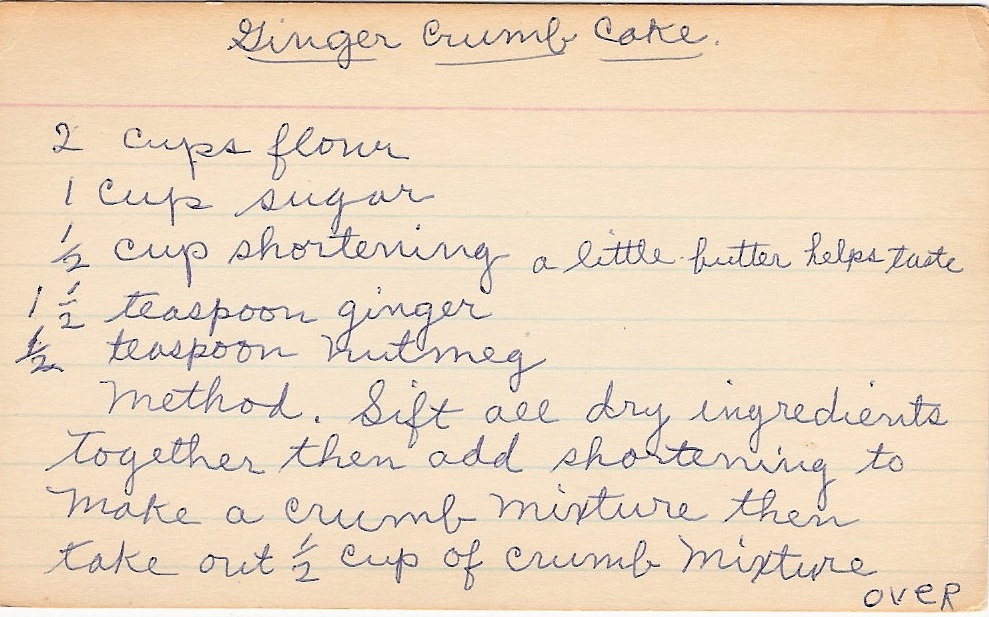 Ginger Crumb Cake.
2 cups flour
1 cup sugar
1/2 cup shortening a little butter helps taste
1 1/2 teaspoon ginger
1/2 teaspoon nutmeg
Method. Sift all dry ingredients
together then add shortening to
make a crumb mixture then
take out 1/2 cup of crumb mixture
OVER